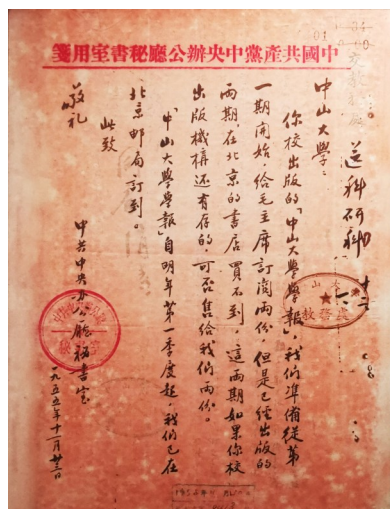 中國共產黨中央辦公廳秘書室用箋
送科研科
中山大學：
你校出版的「中山大學學報」，我們準備從第
一期開始，給毛主席訂閱兩份，但是已經出版的
兩期，在北京的書店買不到，這兩期如果你校
出版機構還有存的，可否售給我們兩份。
「中山大學學報」自明年第一季度起，我們已在
北京邮局訂到。
此致
敬礼
中共中央办公廳秘書室
一九五五年十一月廿三日